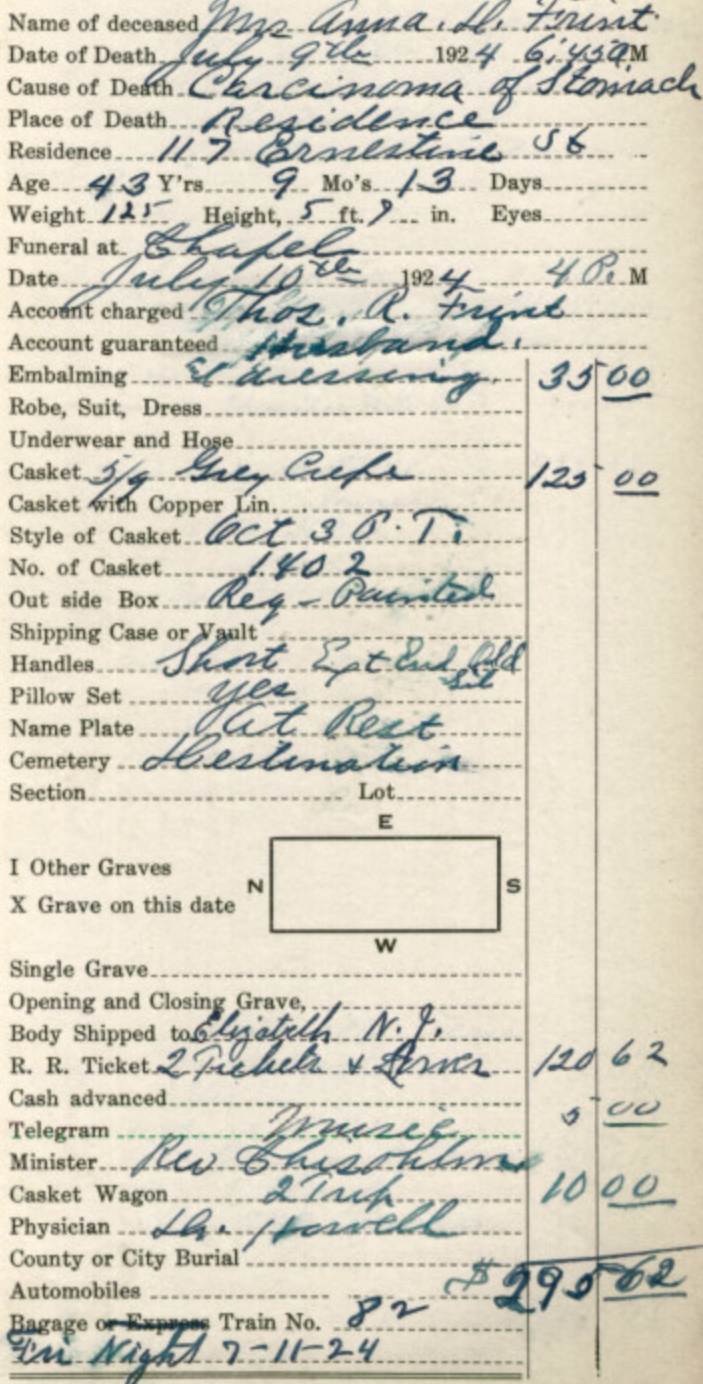 Name of deceased Mrs Anna. H. Frint
Date of Death July 9th 1924 6:45 A M
Cause of Death Carcinoma of Stomach
Place of Death Residence
Residence 117 Ernestine St
Age 43 Y'rs 9 Mo's 13 Days
Weight 125 Height, 5 ft. 7 in. Eyes
Funeral at Chapel
Date July 10th 1924 4 P. M
Account charged Thos. R. Frint
Account guaranteed Husband.
Embalming & dressing 35 00
Robe, Suit, Dress
Underwear and Hose
Casket 5/9 Grey Crepe 125 00
Casket with Copper Lin.
Style of Casket Oct 3 P. T.
No. of Casket 1402
Out side Box Reg - Painted
Shipping Case or Vault
Handles Short Ext End Old Sil
Pillow Set yes
Name Plate At Rest
Cemetery Destination
Section Lot
E
I Other Graves
N S
X Grave on this date
W
Single Grave
Opening and Closing Grave,
Body Shipped to Elizabeth N. J.
R. R. Ticket 2 Tickets & 120 62
Cash advanced 5 00
Telegram Music
Minister Rev Chisohlm
Casket Wagon 2 Trip 10 00
Physician Dr. Howell
County or City Burial
Automobiles $295 62
Bagage or Express Train No. 82
Fri Night 7-11-24